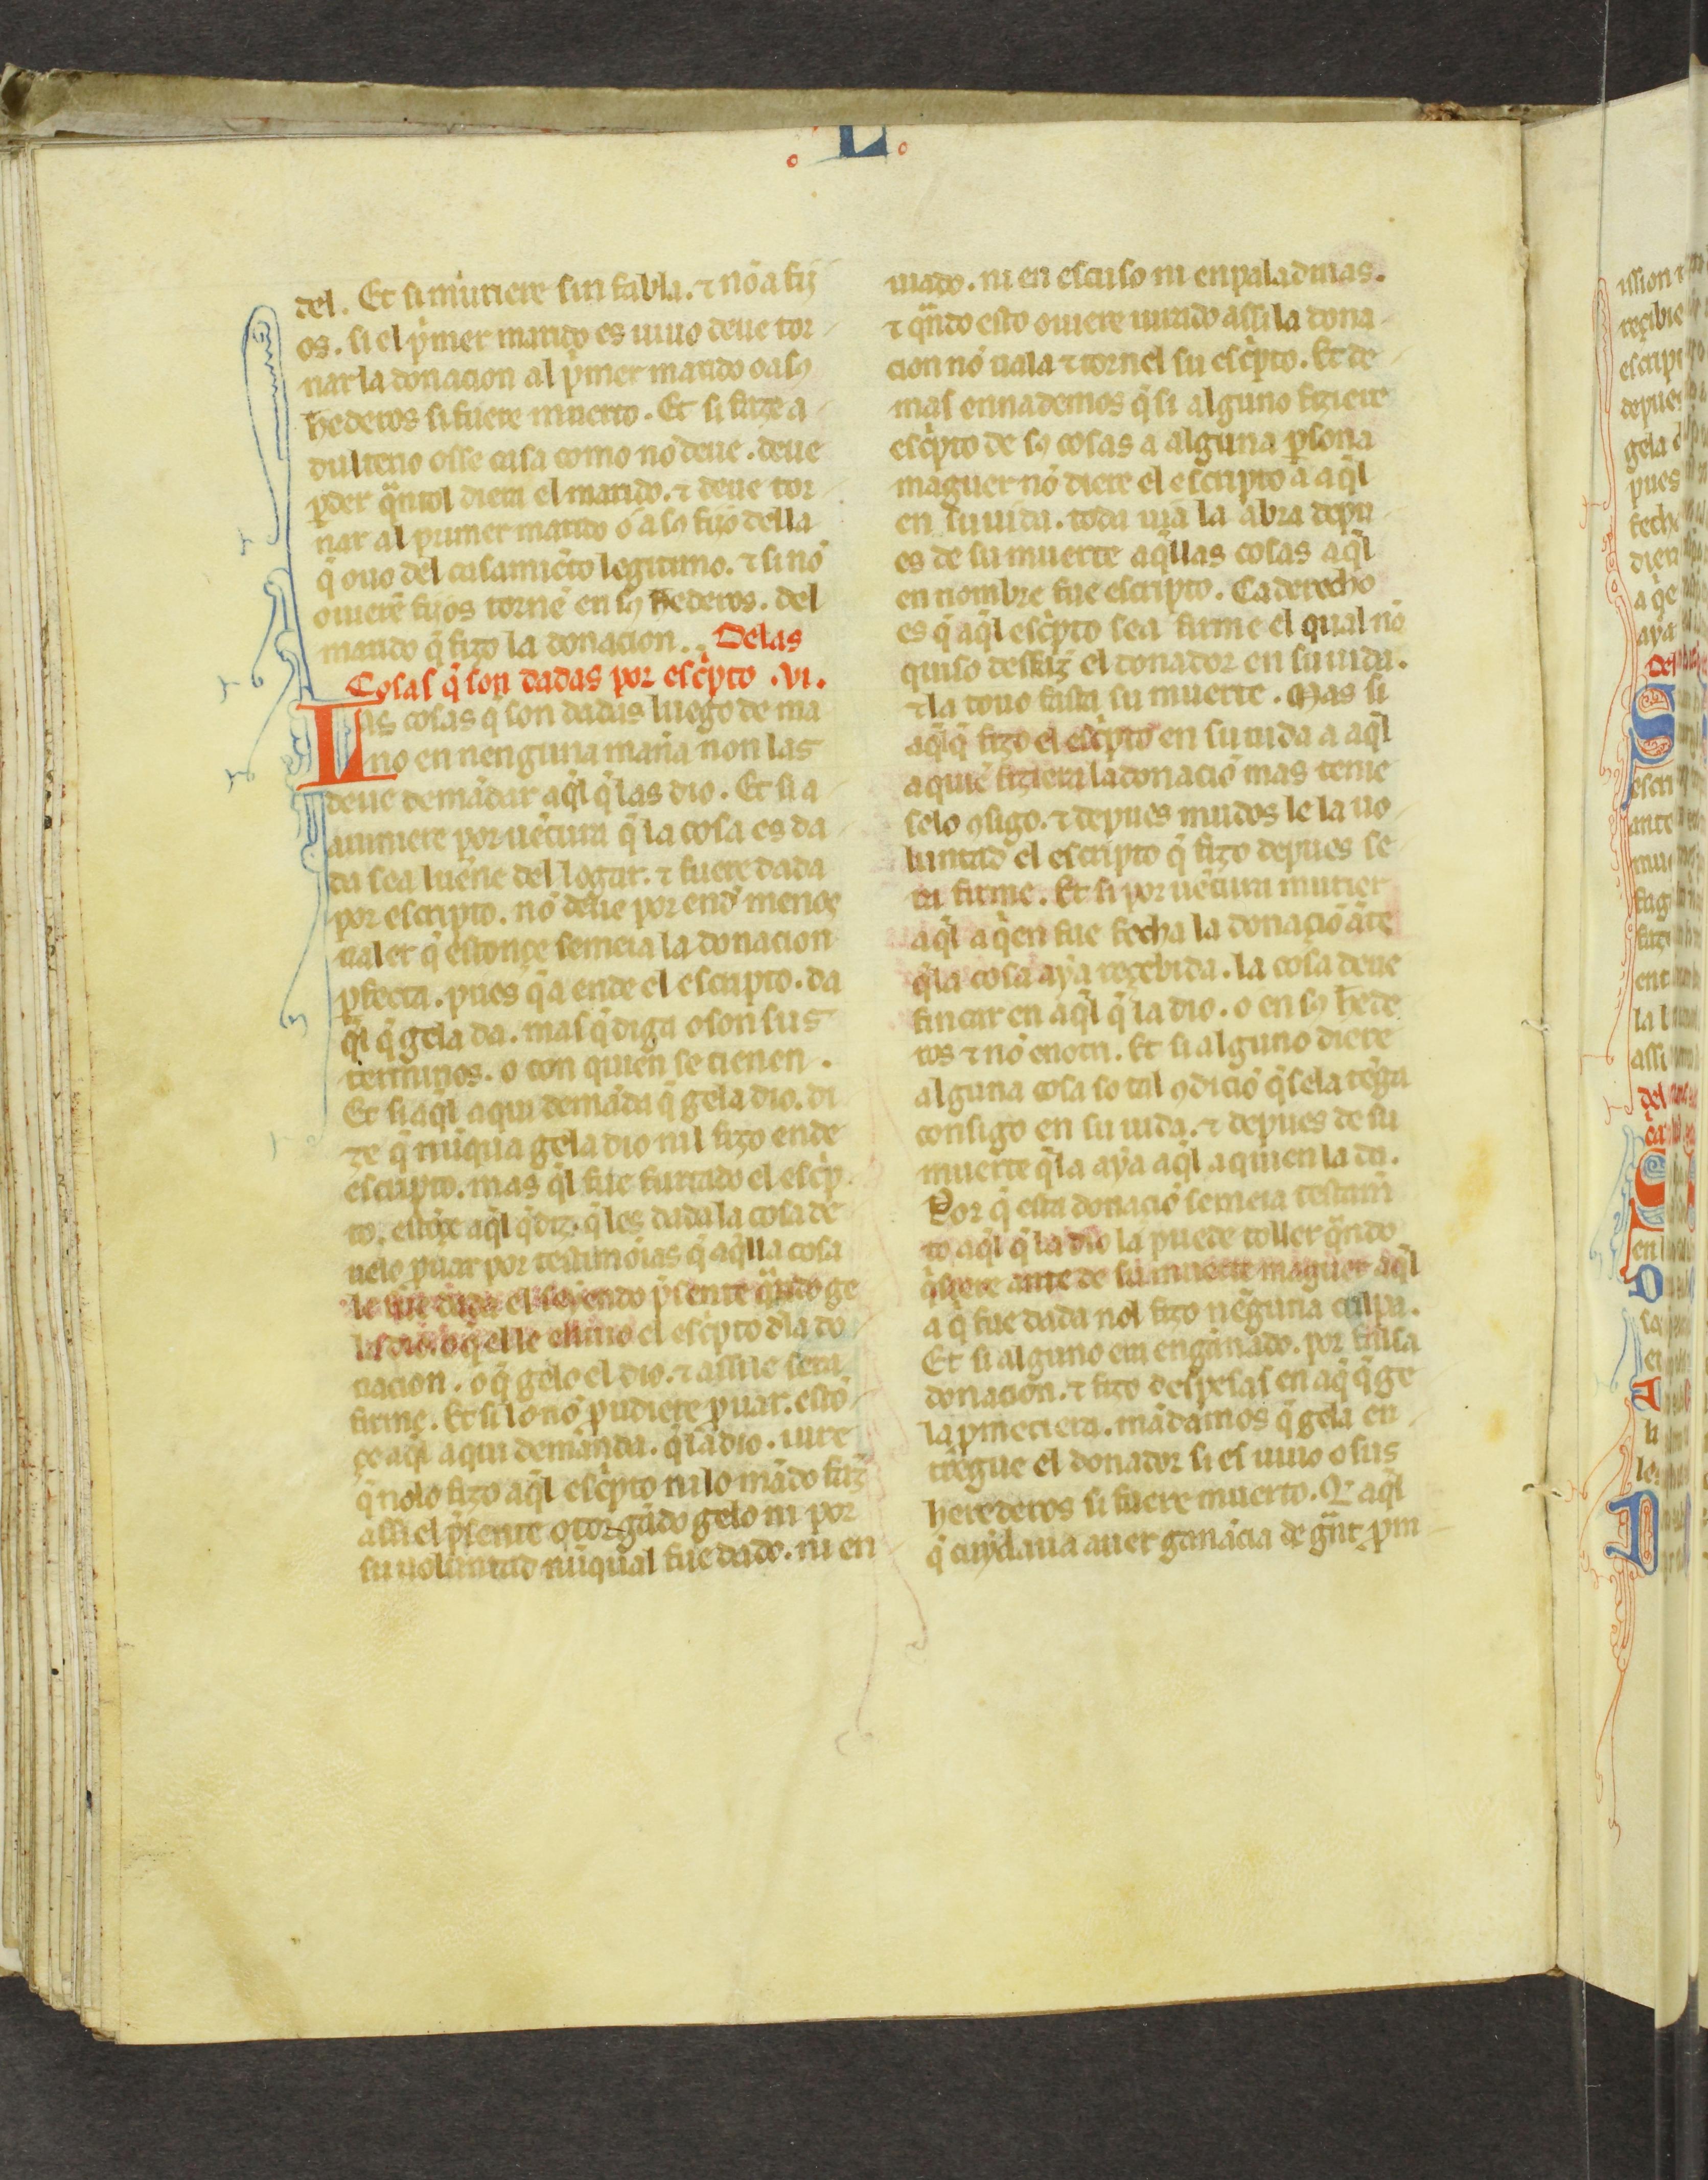 .L.
del. Et si muriere sin fabla. ⁊ nõ a fij
os. si el p̃mer marido es uiuo deue tor
nar la donacion al p̃mer marido o a sꝯ
hederos si fuere muerto. Et si fiziẽ a
dulterio osse casa como nõ deue. deue
ꝑder q̃ntol diera el marido. ⁊ deue tor
nar al primer marido o a sꝯ fijo della
q̃ ouo del casamiẽto legitimo. ⁊ si nõ
ouierẽ fijos tornẽ en sꝯ hederos. del
marido q̃ fizo la donacion. Delas
Cosas q̃ son dadas por esc̃pto .vi.
Las cosas q̃ son dadas luego de ma
no en nenguna maña non las
deue demãdar aq̃l q̃ las dio. Et si a
uiniere por uẽtura q̃ la cosa es da
da sea luẽne del logar. ⁊ fuere dada
por escripto. nõ deue por end̃ menos
ualer q̃ estonçe semeia la donacion
ꝑfecta. pues q̃ a ende el escripto. da
q̃l q̃ gela da. mas q̃ diga o son sus
terminos. o con quien se tienen.
Et si aq̃l aqui demãda q̃ gela dio. di
ze q̃ nũqua gela dio nil fizo ende
escripto. mas q̃l fue furtado el esc̃p
to. estõçe aq̃l q̃ diz. q̃ les dada la cosa de
uelo ꝓuar por testimoias q̃ aq̃lla cosa
le fue dada el seyendo p̃sente q̃ndo ge
la dio. o q̃ el le enuio el esc̃pto dla do
nacion. o q̃ gelo el dio. ⁊ assi le sera
firme. Et si lo nõ pudiere ꝓuar. estõ
çe aq̃l aqui demanda. q̃ la dio. iure
q̃ nolo fizo aq̃l esc̃pto ni lo mãdo faz̃
assi el p̃sente otorgãdo gelo ni por
su uoluntad nũqual fue dado. ni en
uiado. ni en escuso ni en paladinas.
⁊ q̃ndo esto ouiere iurado assi la dona
cion nõ uala ⁊ tornel su esc̃pto. Et de
mas ennademos q̃ si alguno fiziere
esc̃pto de sꝯ cosas a alguna ꝑsona
maguer nõ diere el escripto a aq̃l
en su uida. toda uia la abra depu
es de su muerte aq̃llas cosas aq̃l
en nombre fue escripto. Ca derecho
es q̃ aq̃l esc̃pto sea firme el qual nõ
quiso desfaz̃ el donador en su uida.
⁊ la touo fasta su muerte. Mas si
aq̃l q̃ fizo el esc̃pto en su uida a aq̃l
a quiẽ fiziera la donaciõ mas tenie
selo ꝯsigo. ⁊ depues mudos le la uo
luntad el escripto q̃ fizo depues se
ra firme. Et si por uẽtura murier
aq̃l a q̃en fue fecha la donaciõ ãte
q̃ la cosa aya reçebida. la cosa deue
fincar en aq̃l q̃ la dio. o en sꝯ hede
ros ⁊ nõ en otri. Et si alguno diere
alguna cosa so tal ꝯdiciõ q̃ sela tẽga
consigo en su uida. ⁊ depues de su
muerte q̃ la aya aq̃l a quien la da.
Por q̃ esta donaciõ semeia testam̃
to aq̃l q̃ la dio la puede toller q̃ndo
q̃siere ante de su muerte maguer aq̃l
a q̃ fue dada nol fizo nẽguna culpa.
Et si alguno era engãnado. por falsa
donacion. ⁊ fizo despesas en aq̃ q̃ ge
la ꝓmetiera. mãdamos q̃ gela en
tregue el donador si es uiuo o sus
herederos si fuere muerto. Q̃ aq̃l
q̃ cuydaua auer ganãcia de g̃nt ꝓm